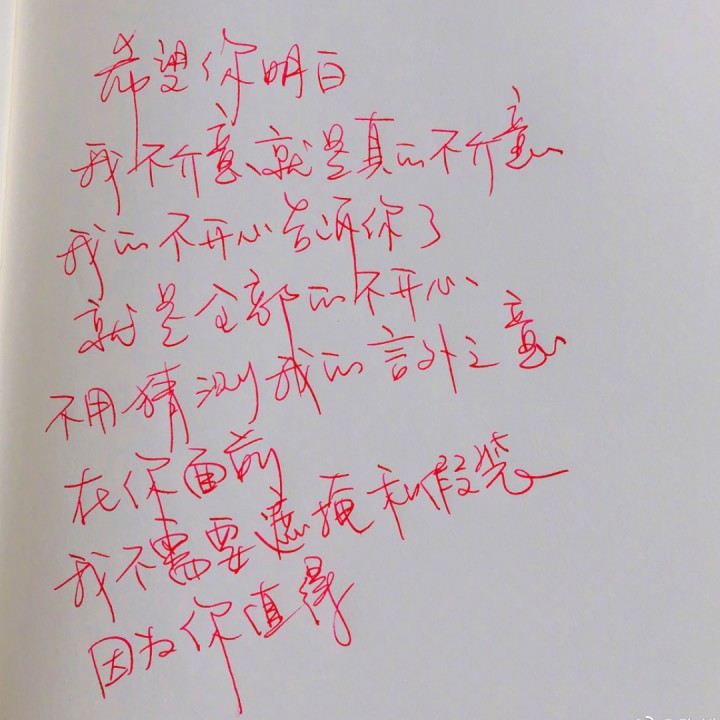 希望你明白
我不介意就是真的不介意
我的不开心告诉你了
就是全部的不开心
不用猜测我的言外之意
在你面前
我不需要遮掩和假装
因为你值得